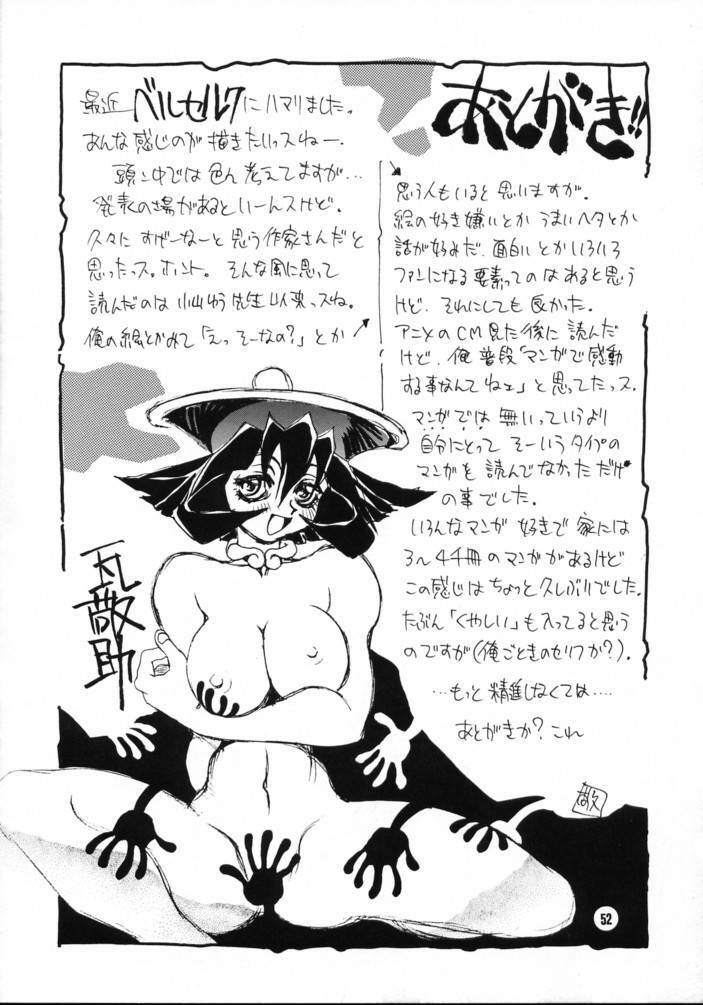 あとがき!!
最近ベルセルクにハマりました。
あんな感じのが描きたいっスねー。
頭ン中では色ん考えてますが…
発表の場があるといーんスけど。
久々にすげーなーと思う作家さんだと
思ったっス。ホント。そんな風に思って
読んだのは小山ゆう先生以来っスね。
俺の絵とかみて「えっそーなの?」とか
思う人もいると思いますが。
絵の好き嫌いとかうまいヘタとか
話が好みだ、面白いとかいろいろ
ファンになる要素ってのはあると思う
けど、それにしても良かった。
アニメのCM見た後に読んだ
けど、俺普段「マンガで感動
する事なんてねェ」と思ってたっス。
マンガでは無いっていうより
自分にとってそーいうタイプの
マンガを読んでなかっただけ
の事でした。
いろんなマンガ好きで家には
3〜4千冊のマンガがあるけど
この感じはちょっと久しぶりでした。
たぶん「くやしい」も入ってると思う
のですが(俺ごときのセリフか?)。
…もっと精進しなくては…。
あとがきか?これ
敬助
52